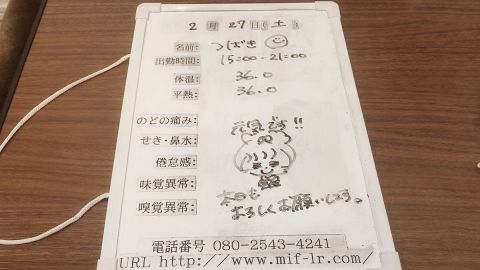 2月27日(土)
名前: つばき
出勤時間: 15:00-21:00
体温: 36.0
平熱: 36.0
のどの痛み:
元気です!!
せき・鼻水:
倦怠感:
味覚異常:
本日も
嗅覚異常: よろしくお願いします。
電話番号 080-2543-4241
URL http://www.mif-lr.com/